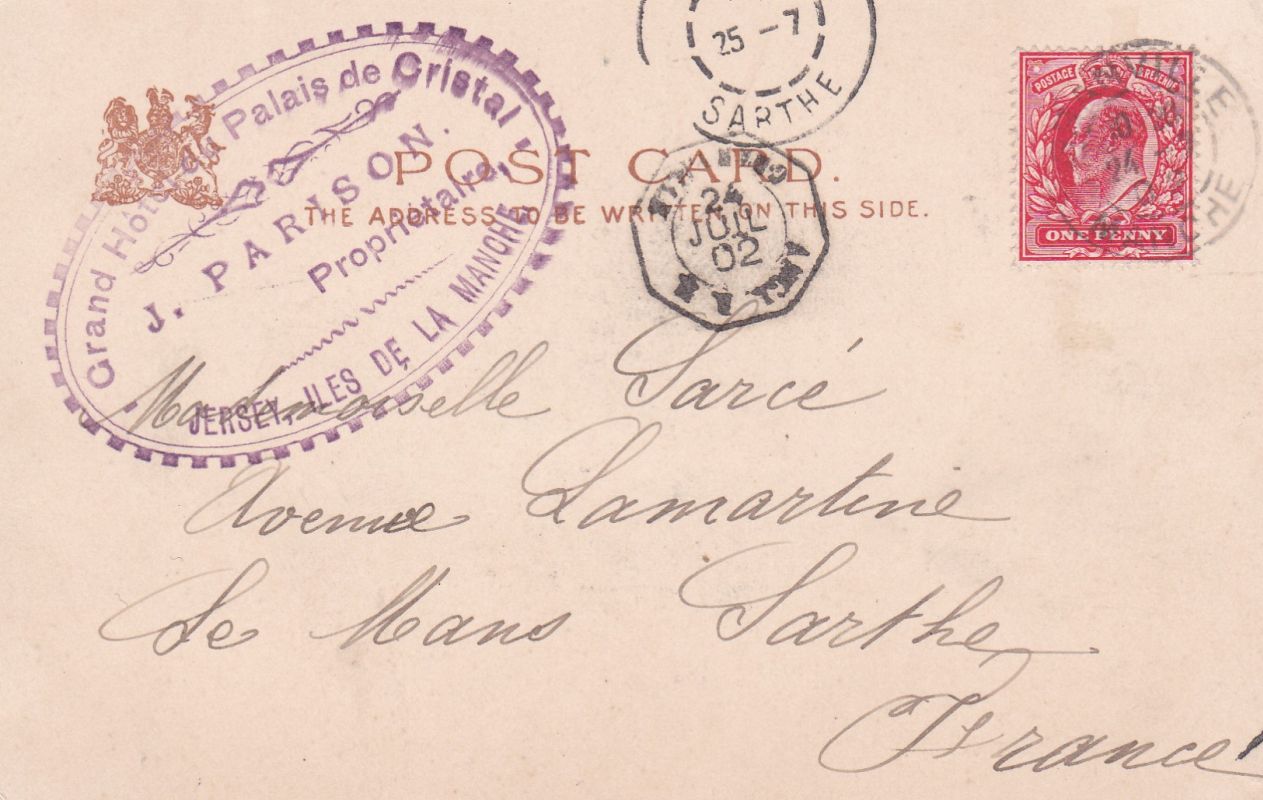 25 - 7
SARTHE
POSTAGE & REVENUE
ONE PENNY
24
Grand Hôtel du Palais de Cristal
J. PARISON.
Propriétaire,
JERSEY, ILES DE LA MANCHE
POST CARD.
THE ADDRESS TO BE WRITTEN ON THIS SIDE.
24
JUIL
02
Mademoiselle Sarcé
Avenue Lamartine
Le Mans Sarthe
France